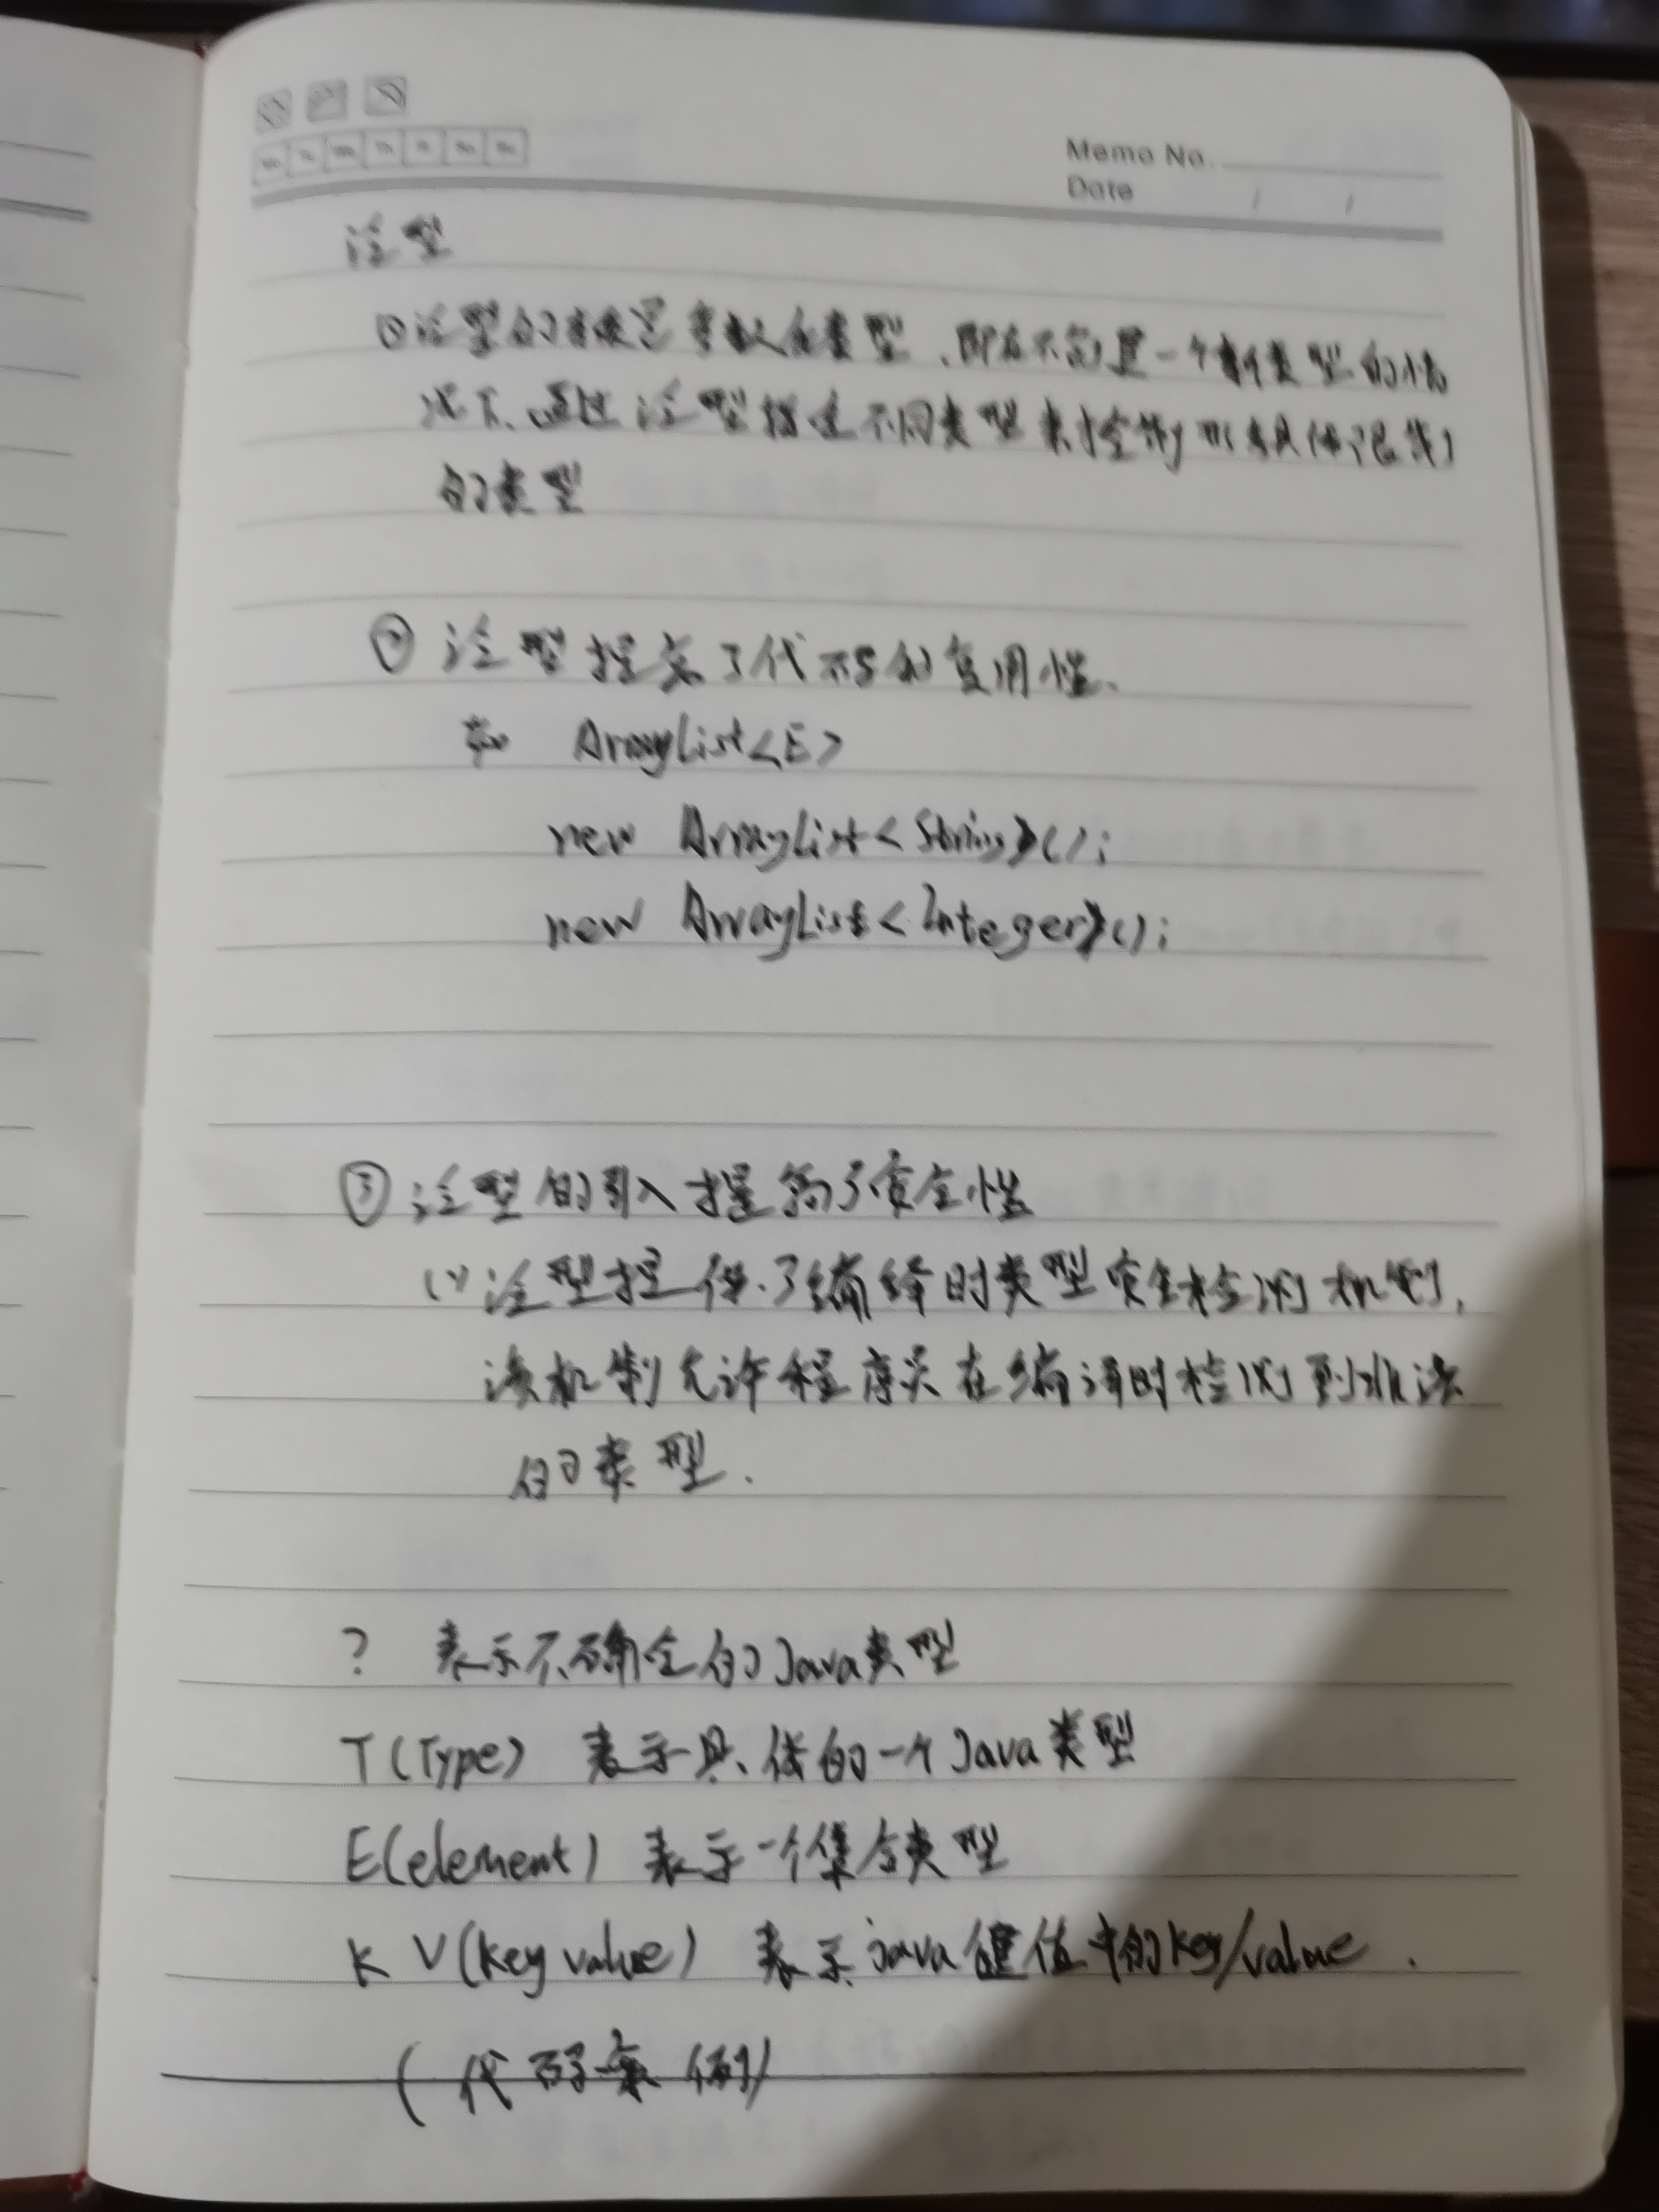 Memo No.
Date / /
泛型
①泛型的本质是参数化类型，即在不创建一个新类型的情
况下，通过泛型指定不同类型来控制形参具体限制
的类型
② 泛型提高了代码的复用性、
如 ArrayList<E>
new ArrayList<String>();
new ArrayList<Integer>();
③ 泛型的引入提高了安全性
(1) 泛型提供了编译时类型安全检测机制,
该机制允许程序员在编译时检测到非法
的类型.
? 表示不确定的Java类型
T(Type) 表示具体的一个Java类型
E(element) 表示一个集合类型
K V(key value) 表示java键值中的key/value.
(代码案例)